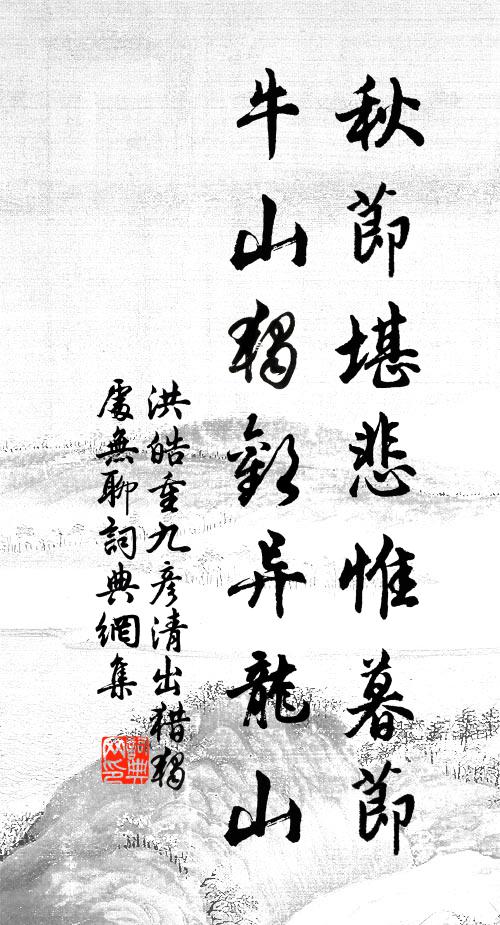 秋節堪悲惟暮節
牛山獨歎异龍山
洪皓重九彥清出猎獨
處無聊詞典網集